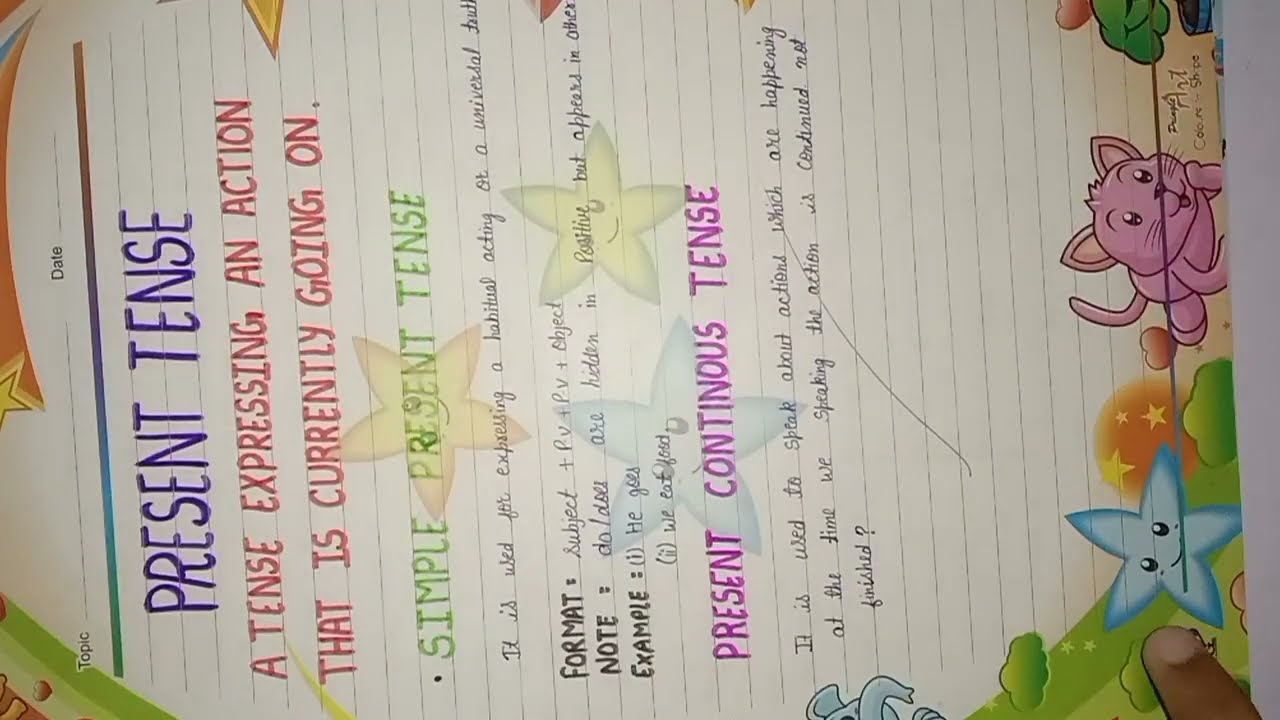 Topic Date
PRESENT TENSE
A TENSE EXPRESSING AN ACTION
THAT IS CURRENTLY GOING ON.
• SIMPLE PRESENT TENSE
It is used for expressing a habitual acting or a universal truth
FORMAT : Subject + P.V + P.V + Object
NOTE : do/does are hidden in Positive but appears in other
EXAMPLE : (i) He goes
(ii) We eat food
PRESENT CONTINOUS TENSE
It is used to speak about actions which are happening
at the time we speaking the action is continued not
finished?
Art
Colours - Shape